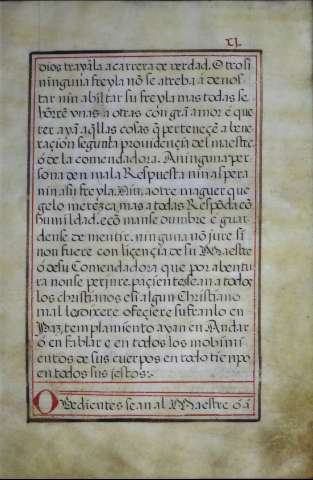 XI.
dios trayala a carrera de verdad. Otro si
ninguna freyla nō se atreba á denos
tar nin abiltar su freyla mas todas se
hōrrē vnas a otras con grā amor é que
rer ayā aq̄llas cosas q̄ perteneçē a bene
raçion segunla providençia del maestre
ó de la comendadora. A ninguna per
sona den mala Respuesta nin aspera
nin a su freyla. Nin a otre maguer que
gelo merezca mas a todas Respōda cō
humildad, e cō mansedumbre e guar
dense de mentir. ninguna nō jure si
non fuere con liçençia de su Maestre
ó de su Comendadora que por abentu
ra non se perjure. paçientes sean a todos
los christianos e si algun Christiano
mal les dixere o feçiere sufranlo en
Paz, templamiento ayan en Andar
ó en fablar e en todos los mobimi
entos de sus cuerpos en todo tienpo
en todos sus jestos:
Obedientes sean al Maestre ó á